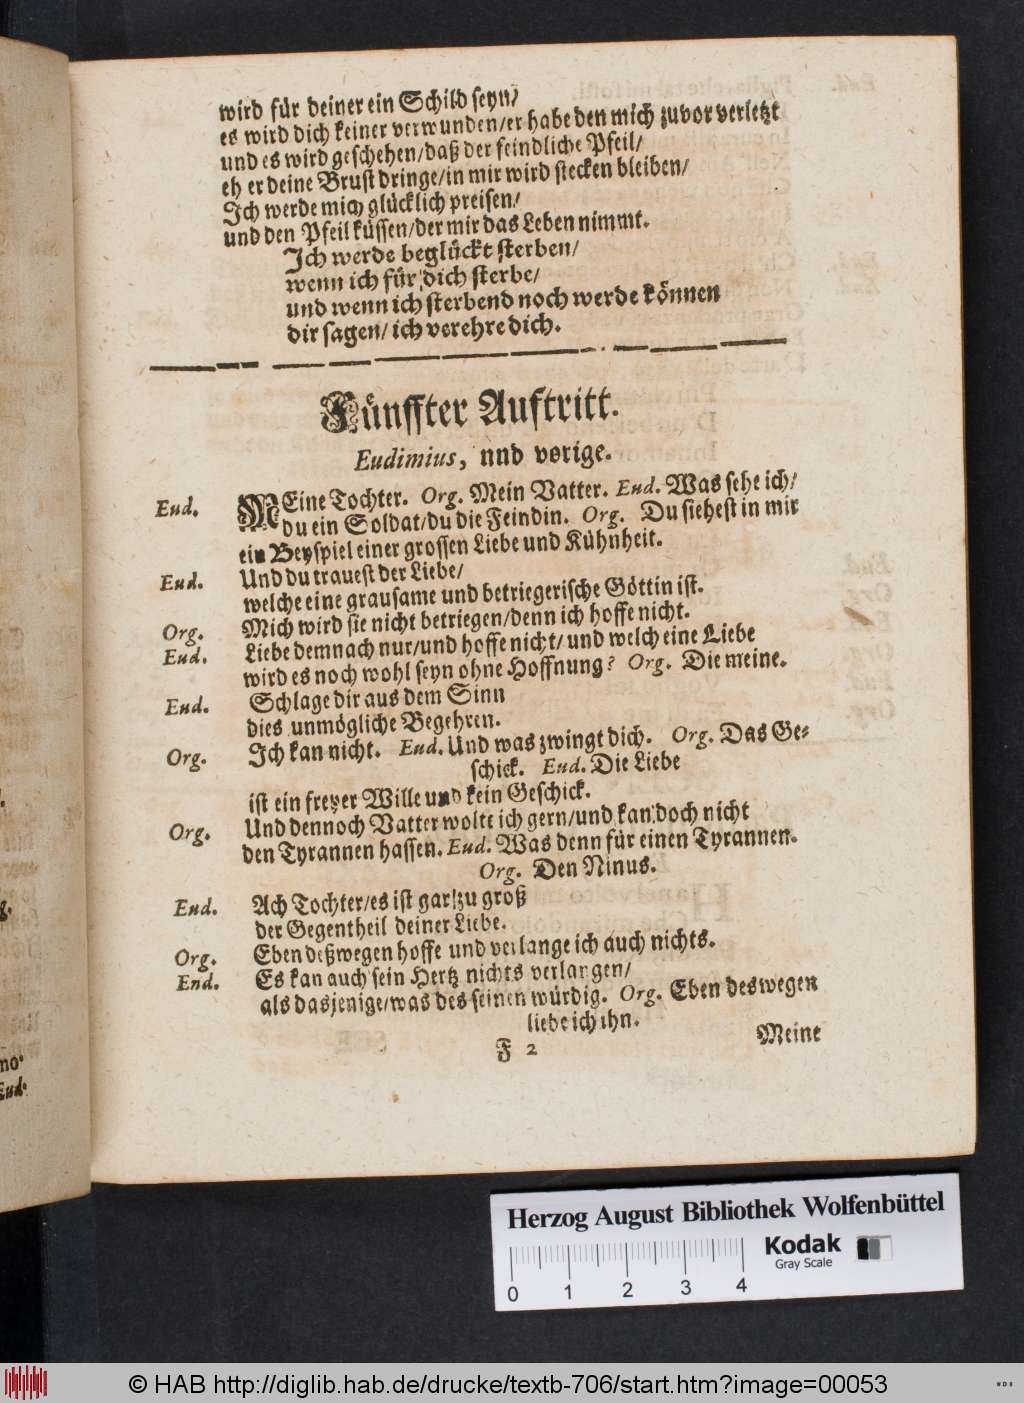 wird für deiner ein Schild seyn/
es wird dich keiner verwunden/er habe den mich zuvor verletzt
und es wird geschehen/daß der feindliche Pfeil/
eh er deine Brust dringe/in mir wird stecken bleiben/
Ich werde mich glücklich preisen/
und den Pfeil küssen/der mir das Leben nimmt.
Ich werde beglückt sterben/
wenn ich für dich sterbe/
und wenn ich sterbend noch werde können
dir sagen/ ich verehre dich.
Fünffter Auftritt.
Eudimius, nnd vorige.
Eud. MEine Tochter. Org. Mein Vatter. Eud. Was sehe ich/
du ein Soldat/du die Feindin. Org. Du siehest in mir
ein Beyspiel einer grossen Liebe und Kühnheit.
Eud. Und du trauest der Liebe/
welche eine grausame und betriegerische Göttin ist.
Org. Mich wird sie nicht betriegen/denn ich hoffe nicht.
Eud. Liebe demnach nur/und hoffe nicht/ und welch eine Liebe
wird es noch wohl seyn ohne Hoffnung? Org. Die meine.
Eud. Schlage dir aus dem Sinn
dies unmögliche Begehren.
Org. Ich kan nicht. Eud. Und was zwingt dich. Org. Das Ge-
schick. Eud. Die Liebe
ist ein freyer Wille und kein Geschick.
Org. Und dennoch Vatter wolte ich gern/und kan doch nicht
den Tyrannen hassen. Eud. Was denn für einen Tyrannen.
Org. Den Ninus.
Eud. Ach Tochter/es ist gar zu groß
der Gegentheil deiner Liebe.
Org. Eben deßwegen hoffe und verlange ich auch nichts.
End. Es kan auch sein Hertz nichts verlangen/
als dasjenige/was des seinen würdig. Org. Eben deswegen
liebe ich ihn.
F 2 Meine
no.
Eud.
Herzog August Bibliothek Wolfenbüttel
Kodak
Gray Scale
0 1 2 3 4
© HAB http://diglib.hab.de/drucke/textb-706/start.htm?image=00053